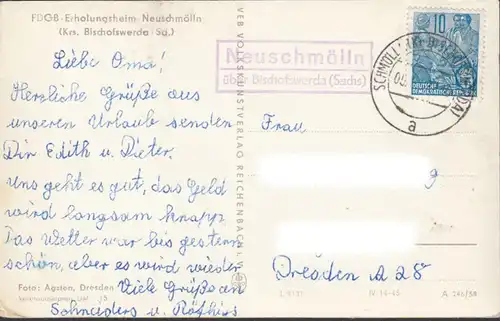 FDGB-Erholungsheim Neuschmölln
(Krs. Bischofswerda-Sa.)
Liebe Oma!
Herzliche Grüße aus
unseren Urlaub senden
Dir Edith u. Dieter.
Uns geht es gut, das Geld
wird langsam knapp.
Das Wetter war bis gestern
schön, aber es wird wieder
Foto: Agsten, Dresden Viele Grüße an
Schnaders u.
VEB VOLKSKUNSTVERLAG REICHENBACH
Neuschmölln
über Bischofswerda (Sachs)
10
DEUTSCHE
DEMOKRATISCHE
a
Frau
g
Dresden A 28
IV-14-45 A 246/58